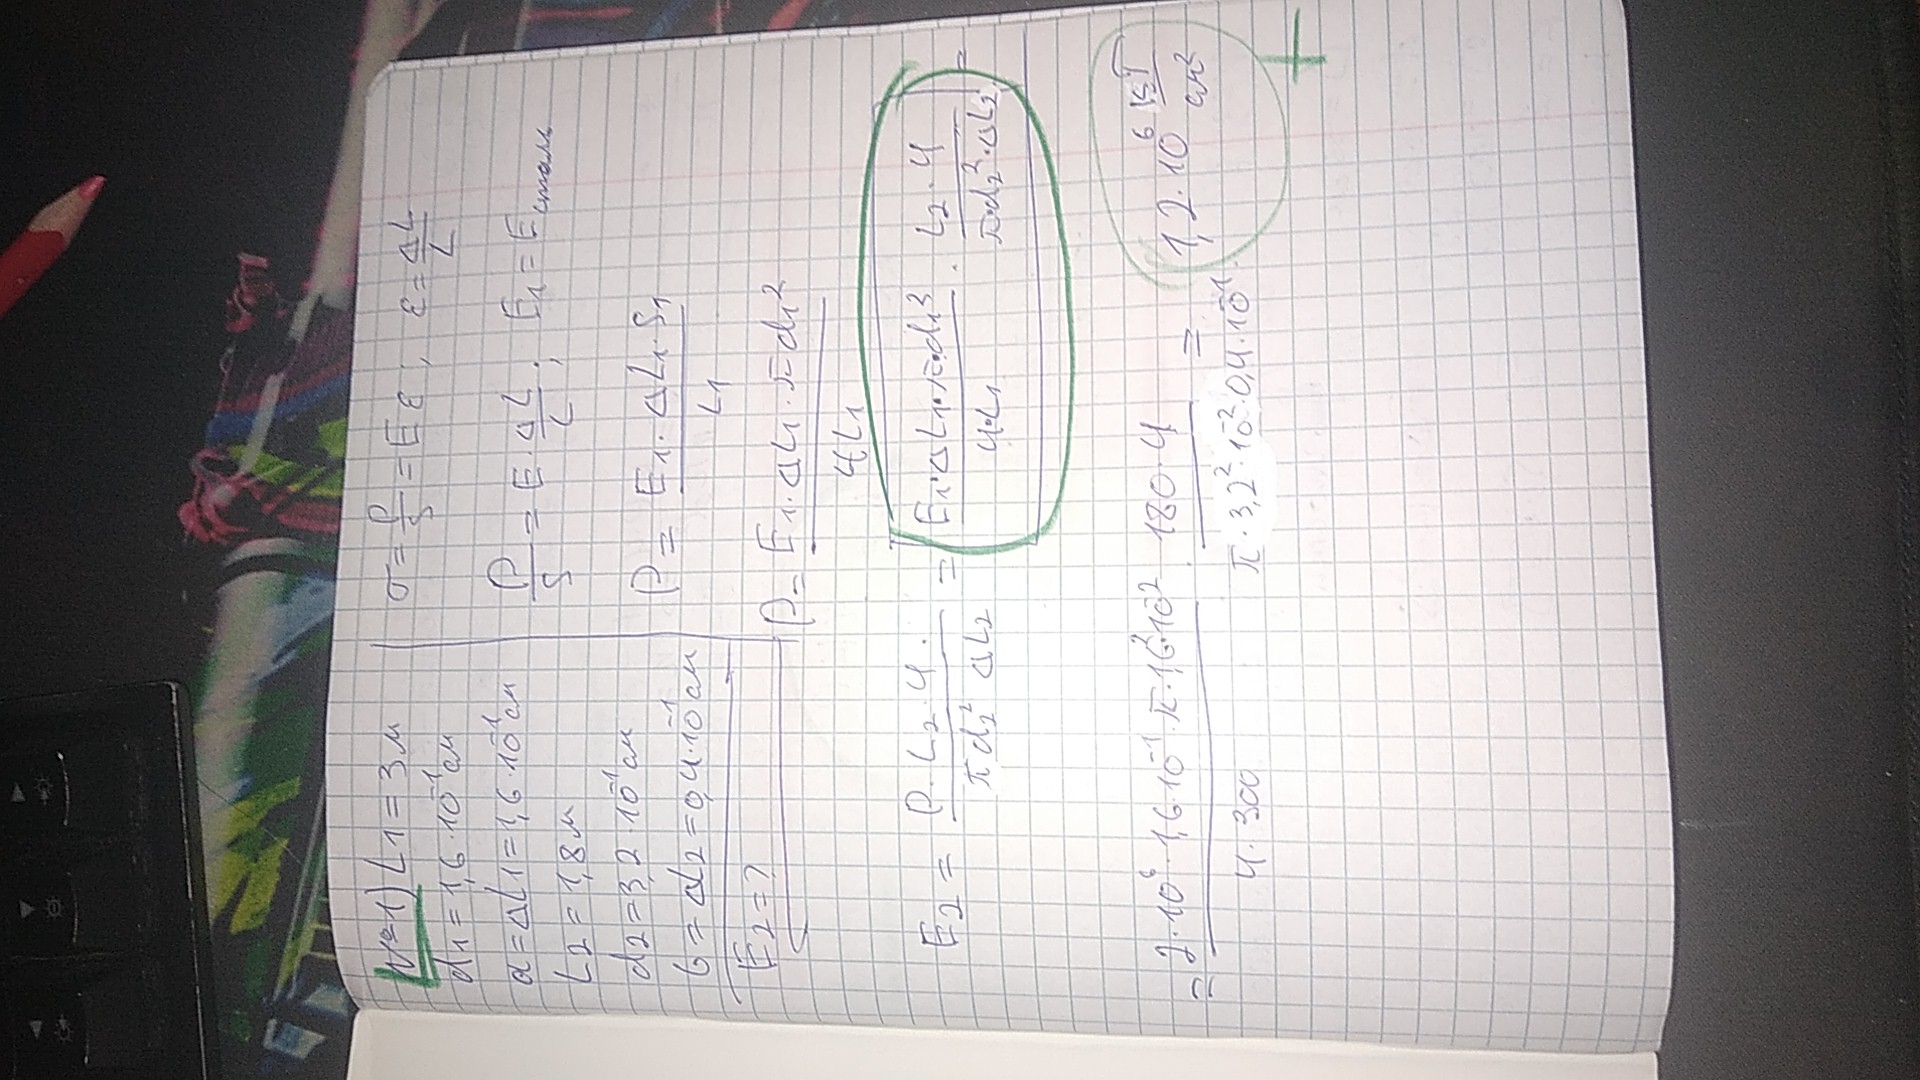 №1) L1 = 3 м
d1 = 1,6 · 10⁻¹ см
a = ΔL1 = 1,6 · 10⁻¹ см
L2 = 1,8 м
d2 = 3,2 · 10⁻¹ см
б = ΔL2 = 0,4 · 10⁻¹ см
E2 = ?
σ = P/S = E ε ; ε = ΔL/L
P/S = E · ΔL/L ; E1 = Eстали
P = E1 · ΔL1 · S1 / L1
P = E1 · ΔL1 · πd1² / 4L1
E2 = P · L2 · 4 · / πd2² ΔL2 = E1 · ΔL1 · π · d1² / 4 · L1 · L2 · 4 / π · d2² · ΔL2 =
= 2 · 10⁶ · 1,6 · 10⁻¹ · π · 1,6² · 10⁻² / 4 · 300 · 180 · 4 / π · 3,2² · 10⁻² · 0,4 · 10⁻¹ = 1,2 · 10⁶ кгГ/см²
+